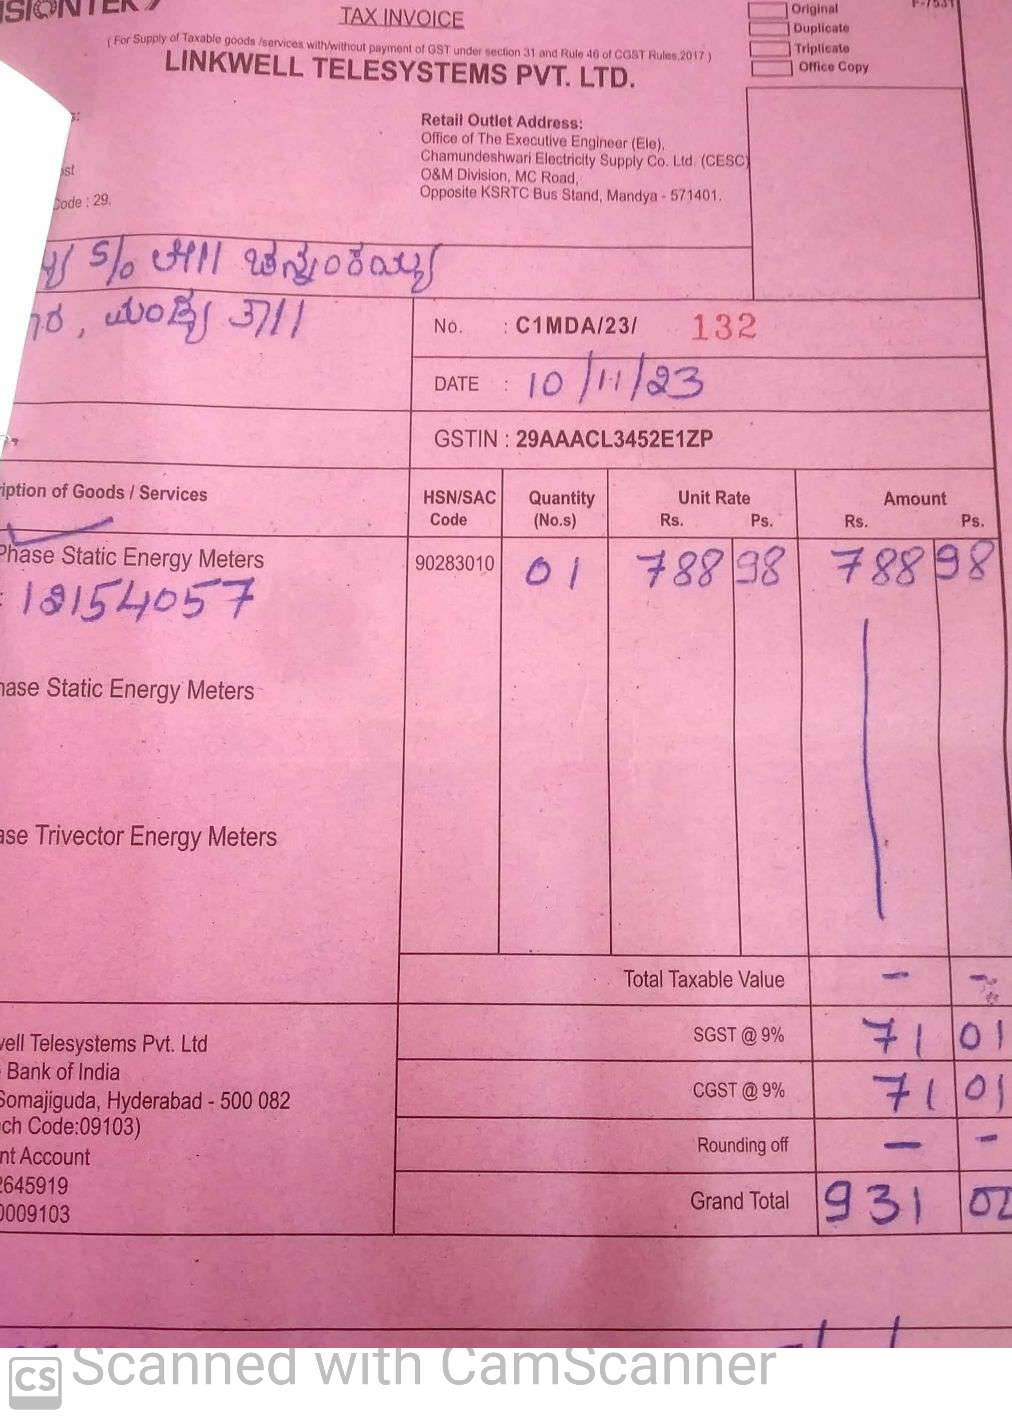 TAX INVOICE
Original
Duplicate
Triplicate
Office Copy
(For Supply of Taxable goods /services with/without payment of GST under section 31 and Rule 46 of CGST Rules,2017)
LINKWELL TELESYSTEMS PVT. LTD.
Retail Outlet Address:
Office of The Executive Engineer (Ele),
Chamundeshwari Electricity Supply Co. Ltd. (CESC)
O&M Division, MC Road,
Opposite KSRTC Bus Stand, Mandya - 571401.
Code : 29.
S/o
ಮಂಡ್ಯ
No. : C1MDA/23/ 132
DATE : 10/11/23
GSTIN : 29AAACL3452E1ZP
iption of Goods / Services HSN/SAC Code Quantity (No.s) Unit Rate Rs. Ps. Amount Rs. Ps.
Phase Static Energy Meters 90283010 01 788 98 788 98
18154057
hase Static Energy Meters
ase Trivector Energy Meters
Total Taxable Value - -
SGST @ 9% 71 01
CGST @ 9% 71 01
Rounding off - -
Grand Total 931 02
well Telesystems Pvt. Ltd
Bank of India
Somajiguda, Hyderabad - 500 082
ch Code:09103)
nt Account
2645919
0009103
CS Scanned with CamScanner